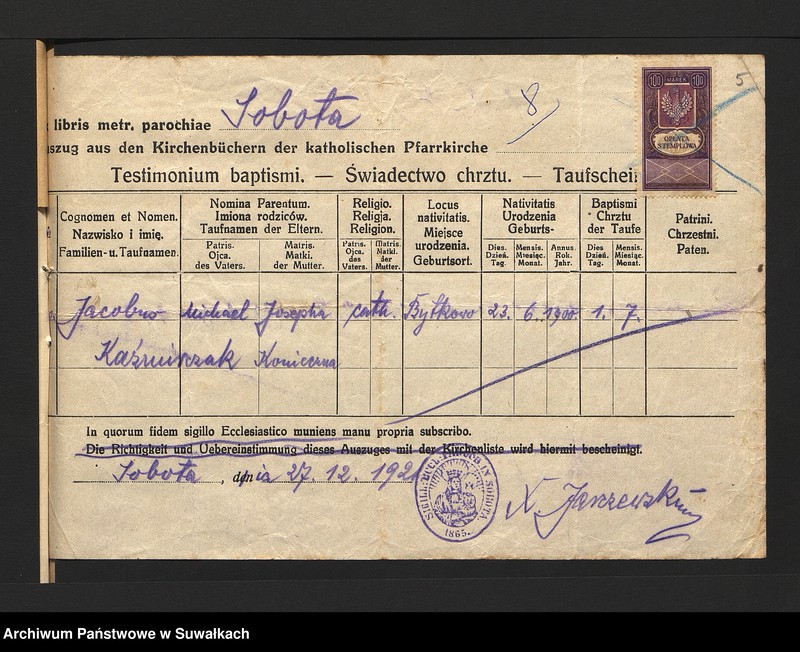 libris metr. parochiae Sobota
8
5
100 MAREK 100
OPŁATA
STEMPLOWA
szug aus den Kirchenbüchern der katholischen Pfarrkirche
Testimonium baptismi. — Świadectwo chrztu. — Taufschein
Cognomen et Nomen.
Nazwisko i imię.
Familien- u. Taufnamen.
Nomina Parentum.
Imiona rodziców.
Taufnamen der Eltern.
Patris.
Ojca.
des Vaters.
Matris.
Matki.
der Mutter.
Religio.
Religja.
Religion.
Patris.
Ojca.
des
Vaters.
Matris.
Matki.
der
Mutter.
Locus
nativitatis.
Miejsce
urodzenia.
Geburtsort.
Nativitatis
Urodzenia
Geburts-
Dies.
Dzień.
Tag.
Mensis.
Miesiąc.
Monat.
Annus.
Rok.
Jahr.
Baptismi
Chrztu
der Taufe
Dies.
Dzień.
Tag.
Mensis.
Miesiąc.
Monat.
Patrini.
Chrzestni.
Paten.
Jacobus Michael Josepha cath. Bytkowo 23. 6. 1900. 1. 7.
Kaźmierczak Konieczna
In quorum fidem sigillo Ecclesiastico muniens manu propria subscribo.
Die Richtigkeit und Uebereinstimmung dieses Auszuges mit der Kirchenliste wird hiermit bescheinigt.
Sobota, dnia 27. 12. 192
IN SOBOTA.
1865.
Archiwum Państwowe w Suwałkach